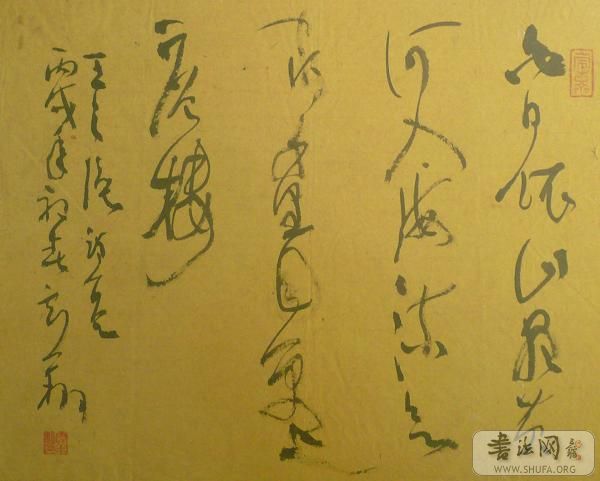 白日依山尽黄
河入海流欲
穷千里目更上
一层楼
王之涣诗
丙戌年初春
書法网
WWW.SHUFA.ORG